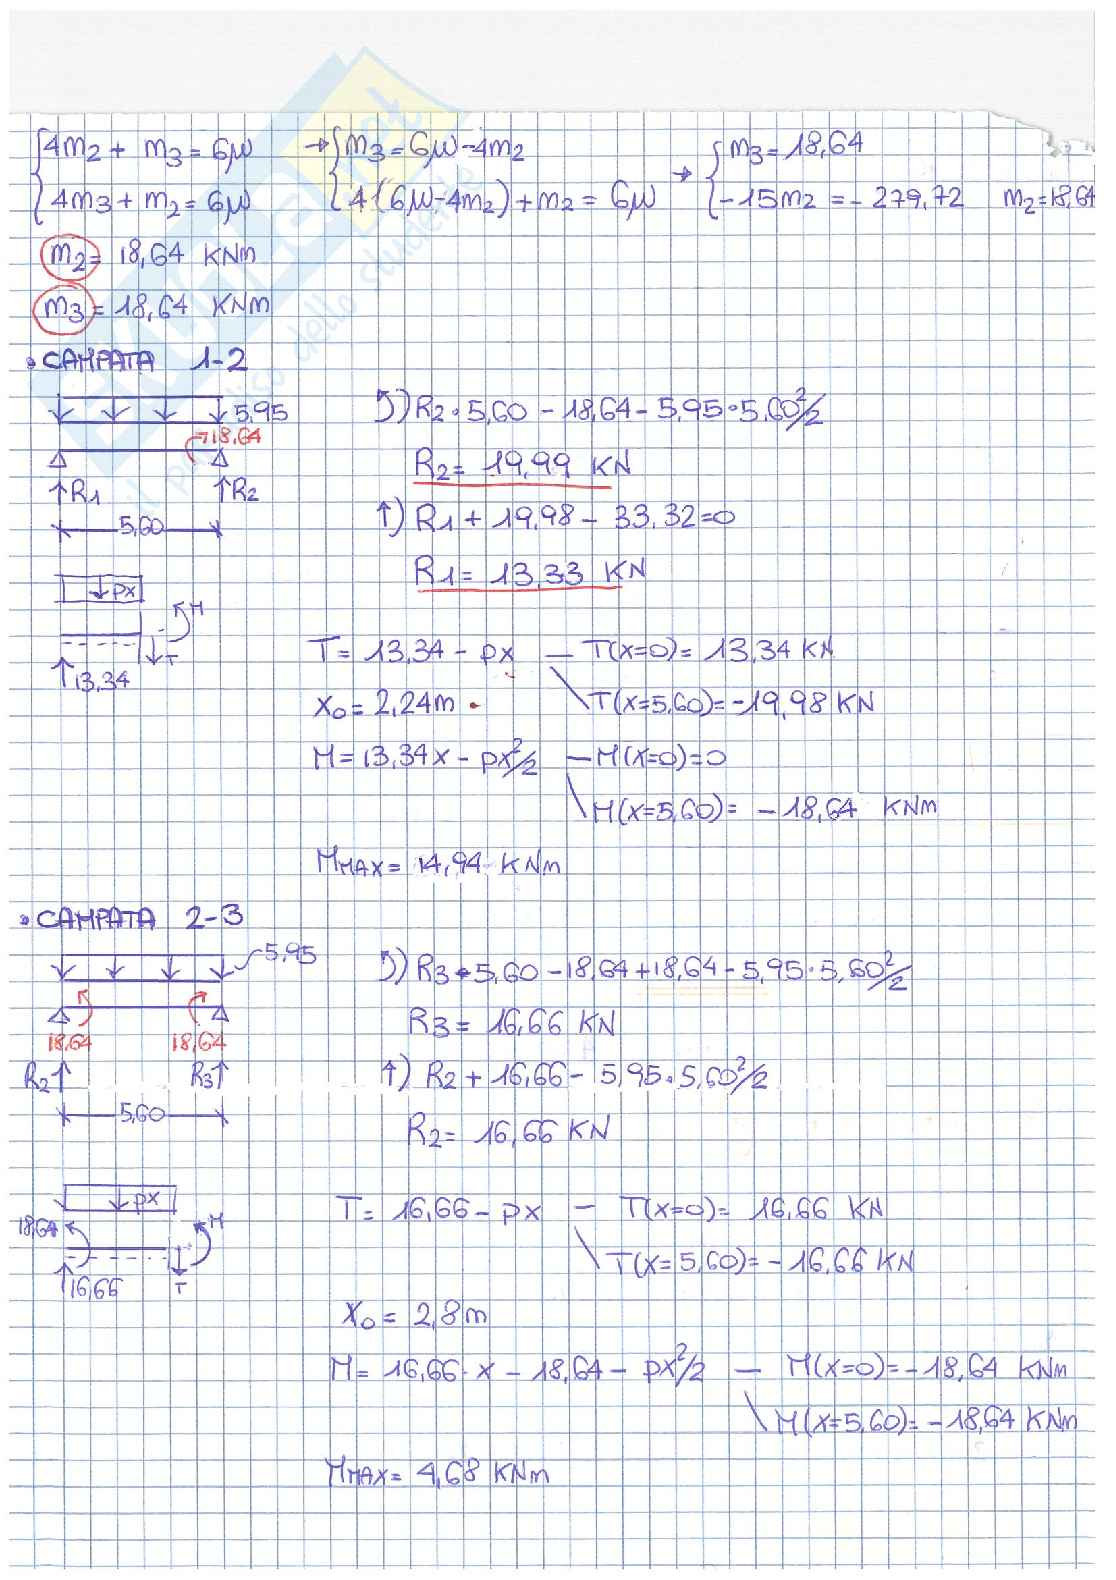 {4m2 + m3 = 6μ → {m3 = 6μ-4m2 → {m3 = 18,64
{4m3 + m2 = 6μ {4(6μ-4m2)+m2 = 6μ {-15m2 = -279,72 m2=18,64
m2 = 18,64 KNm
m3 = 18,64 KNm
• CAMPATA 1-2
5,95
18,64
R1 R2
5,60
R2 • 5,60 - 18,64 - 5,95 • 5,60²/2
R2 = 19,99 KN
↑) R1 + 19,98 - 33,32=0
R1 = 13,33 KN
px
M
T
13,34
T = 13,34 - px — T(x=0) = 13,34 KN
T(x=5,60) = -19,98 KN
x0 = 2,24m •
M = 13,34x - px²/2 — M(x=0)=0
M(x=5,60) = -18,64 KNm
MMAX = 14,94 KNm
• CAMPATA 2-3
5,95
18,64 18,64
R2↑ R3↑
5,60
R3 • 5,60 - 18,64 + 18,64 - 5,95 • 5,60²/2
R3 = 16,66 KN
↑) R2 + 16,66 - 5,95 • 5,60²/2
R2 = 16,66 KN
px
18,64
M
16,66
T
T = 16,66 - px — T(x=0) = 16,66 KN
T(x=5,60) = -16,66 KN
x0 = 2,8m
M = 16,66 • x - 18,64 - px²/2 — M(x=0) = -18,64 KNm
M(x=5,60) = -18,64 KNm
MMAX = 4,68 KNm
dello studente